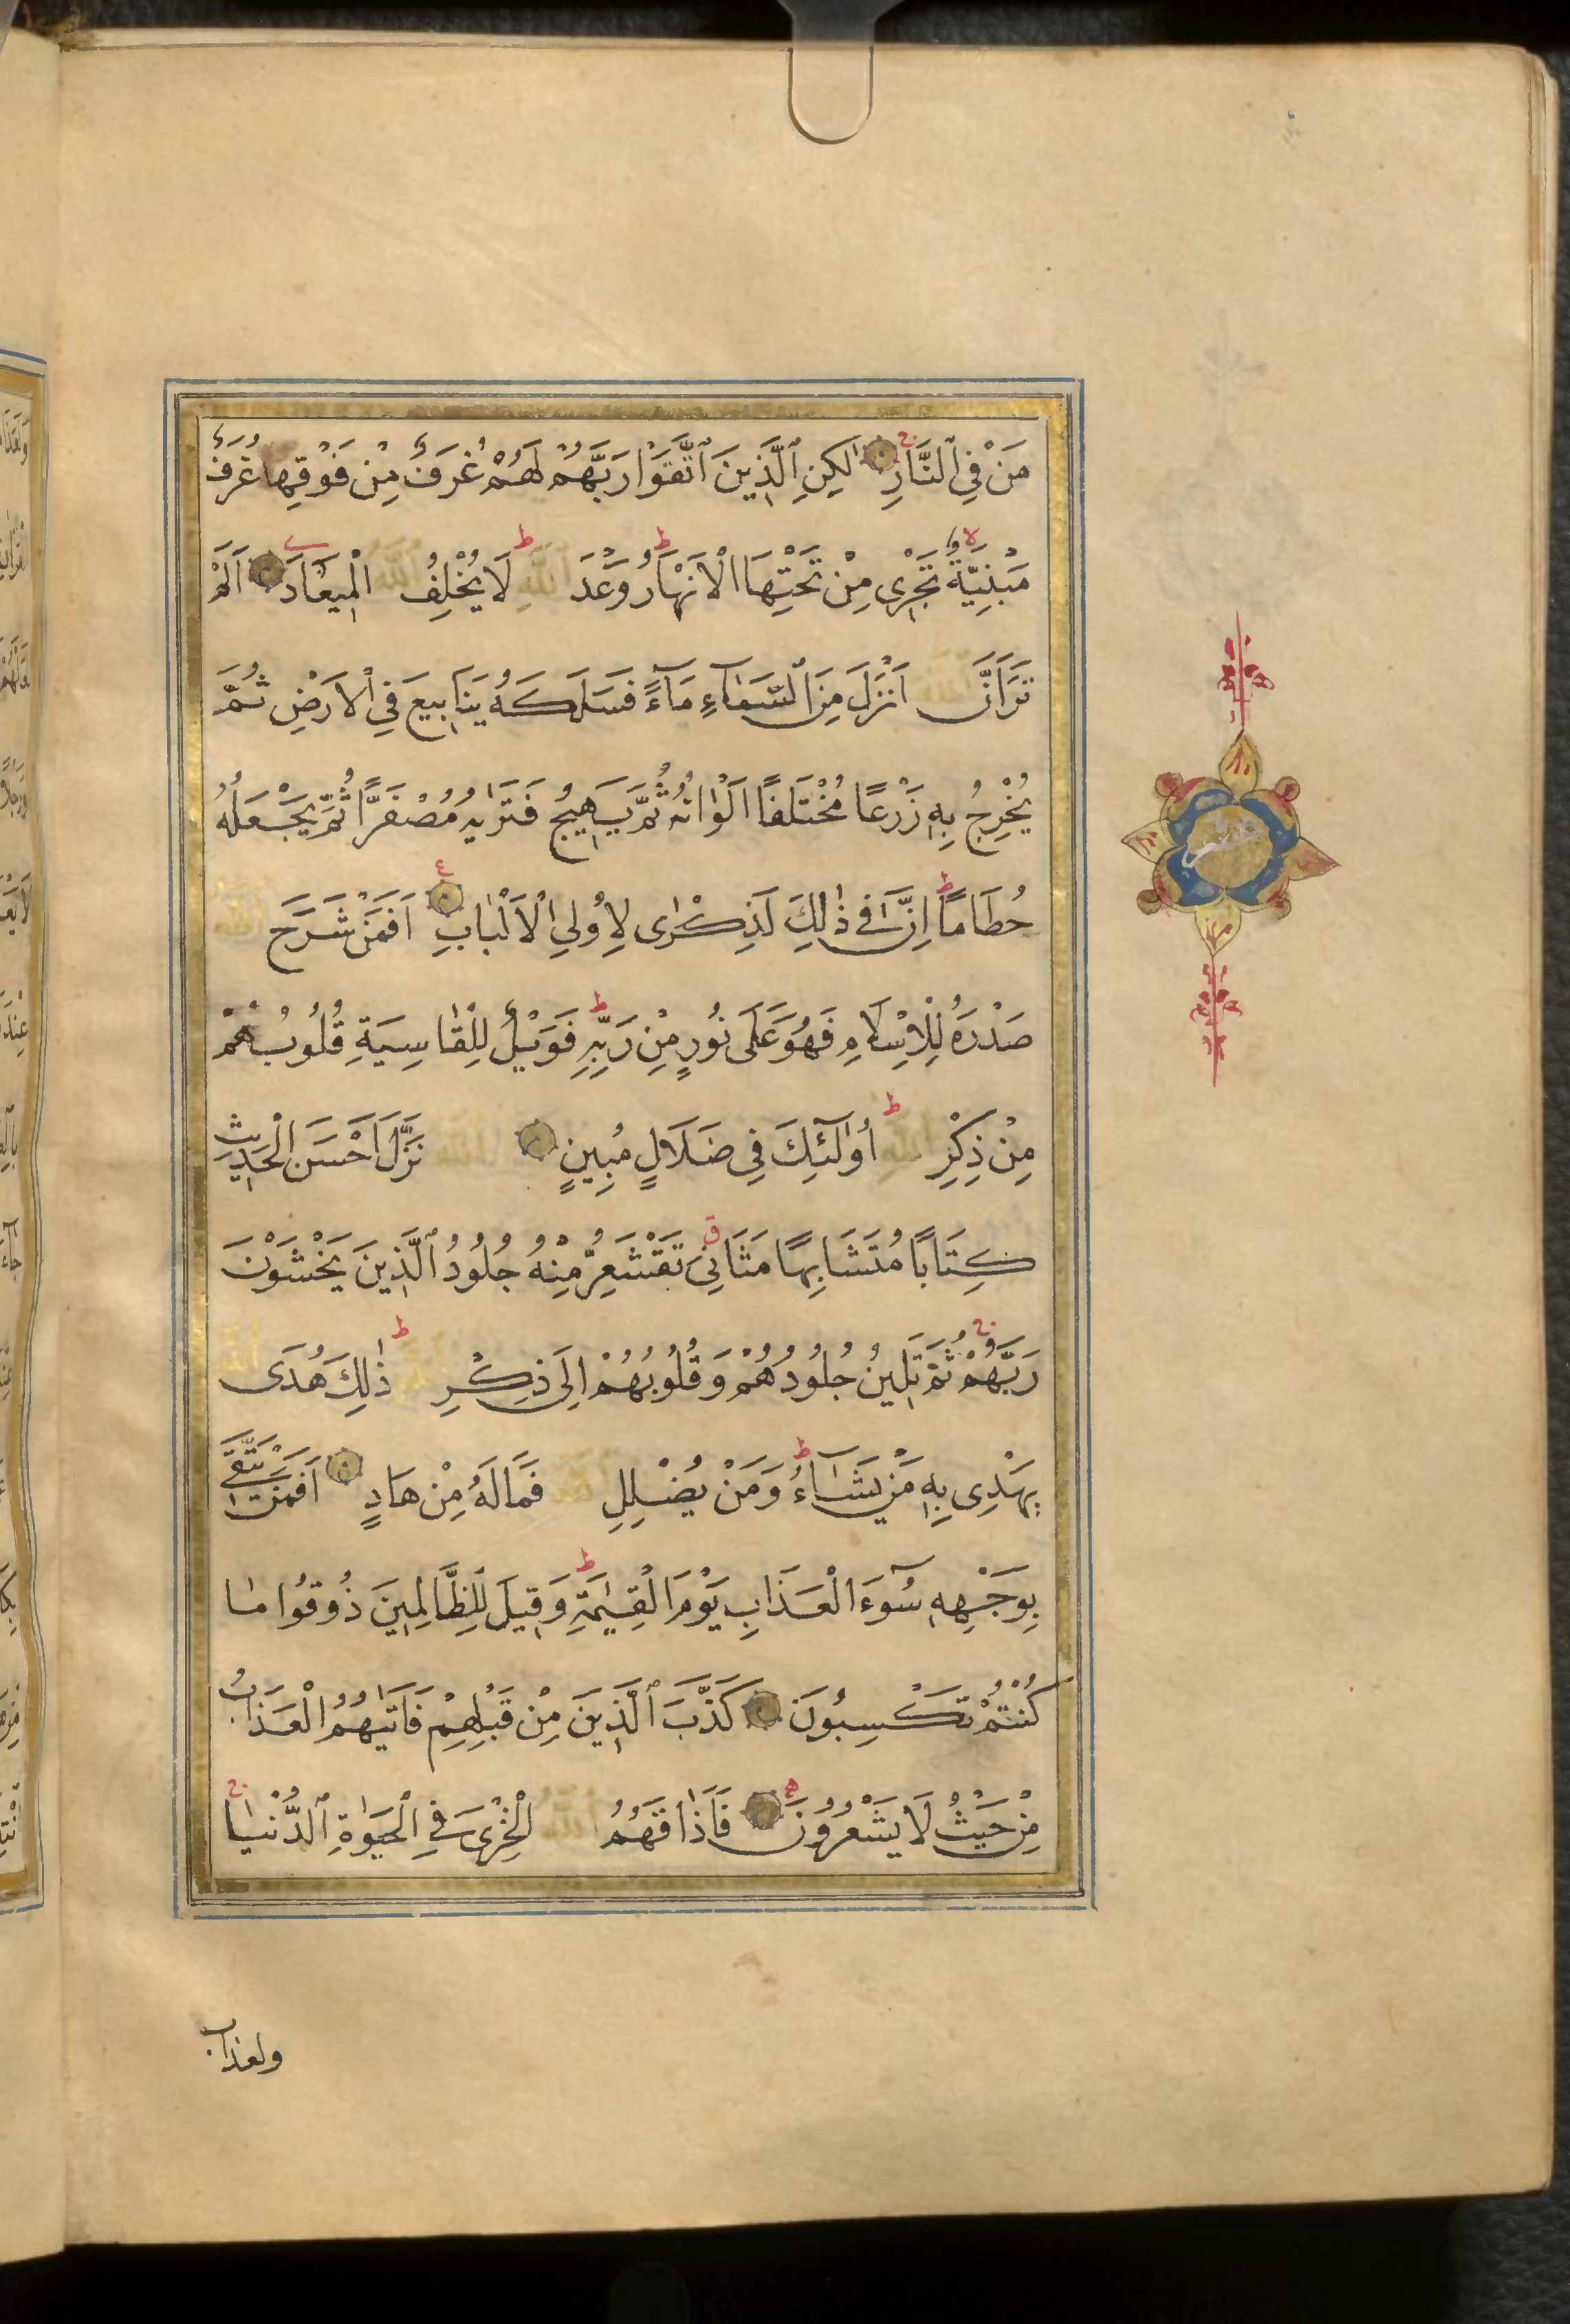 مَنْ فِي ٱلنَّارِ لٰكِنِ ٱلَّذِينَ ٱتَّقَوْا رَبَّهُمْ لَهُمْ غُرَفٌ مِنْ فَوْقِهَا غُرَفٌ
مَبْنِيَّةٌ تَجْرِى مِنْ تَحْتِهَا الْاَنْهَارُ وَعْدَ اللّٰهِ لَا يُخْلِفُ اللّٰهُ الْمِيعَادَ اَلَمْ
تَرَ اَنَّ اللّٰهَ اَنْزَلَ مِنَ ٱلسَّمَاءِ مَآءً فَسَلَكَهُ يَنَابِيعَ فِي ٱلْاَرْضِ ثُمَّ
يُخْرِجُ بِهِ زَرْعًا مُخْتَلِفًا اَلْوَانُهُ ثُمَّ يَهِيجُ فَتَرٰيهُ مُصْفَرًّا ثُمَّ يَجْعَلُهُ
حُطَامًا اِنَّ فِى ذٰلِكَ لَذِكْرٰى لِاُولِي الْاَلْبَابِ اَفَمَنْ شَرَحَ اللّٰهُ
صَدْرَهُ لِلْاِسْلَامِ فَهُوَ عَلَى نُورٍ مِنْ رَبِّهِ فَوَيْلٌ لِلْقَاسِيَةِ قُلُوبُهُمْ
مِنْ ذِكْرِ اللّٰهِ اُولٰٓئِكَ فِى ضَلَالٍ مُبِينٍ اَللّٰهُ نَزَّلَ اَحْسَنَ الْحَدِيثِ
كِتَابًا مُتَشَابِهًا مَثَانِىَ تَقْشَعِرُّ مِنْهُ جُلُودُ ٱلَّذِينَ يَخْشَوْنَ
رَبَّهُمْ ثُمَّ تَلِينُ جُلُودُهُمْ وَقُلُوبُهُمْ اِلَى ذِكْرِ اللّٰهِ ذٰلِكَ هُدَى اللّٰهِ
يَهْدِى بِهِ مَنْ يَشَآءُ وَمَنْ يُضْلِلِ اللّٰهُ فَمَا لَهُ مِنْ هَادٍ اَفَمَنْ يَتَّقِى
بِوَجْهِهِ سُوٓءَ الْعَذَابِ يَوْمَ الْقِيٰمَةِ وَقِيلَ لِلظَّالِمِينَ ذُوقُوا مَا
كُنْتُمْ تَكْسِبُونَ كَذَّبَ ٱلَّذِينَ مِنْ قَبْلِهِمْ فَاَتٰيهُمُ الْعَذَابُ
مِنْ حَيْثُ لَا يَشْعُرُونَ فَاَذَاقَهُمُ اللّٰهُ الْخِزْىَ فِي الْحَيٰوةِ ٱلدُّنْيَا
ولعذاب